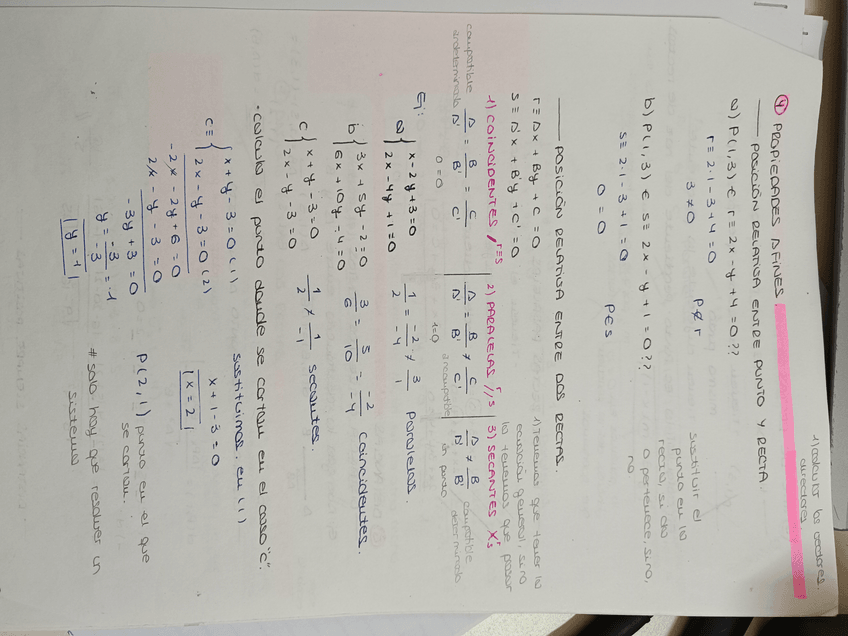 1) calcular los vectores
directores.
④ PROPIEDADES AFINES
POSICIÓN RELATIVA ENTRE PUNTO Y RECTA.
a) P(1,3) € r≡ 2x - y + 4 = 0 ??
r≡ 2·1 - 3 + 4 = 0
3 ≠ 0
P ∉ r
sustituir el
punto en la
recta, si da
0 pertenece, sino,
no
b) P(1,3) € s≡ 2x - y + 1 = 0 ??
s≡ 2·1 - 3 + 1 = 0
0 = 0
P∈s
POSICIÓN RELATIVA ENTRE DOS RECTAS.
r≡ Ax + By + C = 0
s≡ A'x + B'y + C' = 0
1) Tenemos que tener la
ecuación general, si no
la tenemos que pasar
1) COINCIDENTES r≡s
2) PARALELAS r//s
3) SECANTES
A/A' = B/B' = C/C'
A/A' = B/B' ≠ C/C'
A/A' ≠ B/B'
compatible
indeterminado
0 = 0
incompatible
compatible
determinado
un punto
Ej:
a) { x - 2y + 3 = 0
2x - 4y + 1 = 0
1/2 = -2/-4 ≠ 3/1 paralelas.
b { 3x + 5y - 2 = 0
6x + 10y - 4 = 0
3/6 = 5/10 = -2/-4 coincidentes.
c { x + y - 3 = 0
2x - y - 3 = 0
1/2 ≠ 1/-1 secantes.
· calcula el punto donde se cortan en el caso "c".
c≡ { x + y - 3 = 0 (1)
2x - y - 3 = 0 (2)
-2x - 2y + 6 = 0
2x - y - 3 = 0
-3y + 3 = 0
y = -3/-3 = -1
y = -1
sustituimos en (1)
x + 1 - 3 = 0
x = 2
P(2,1) punto en el que
se cortan.
# solo hay que resolver un
sistema